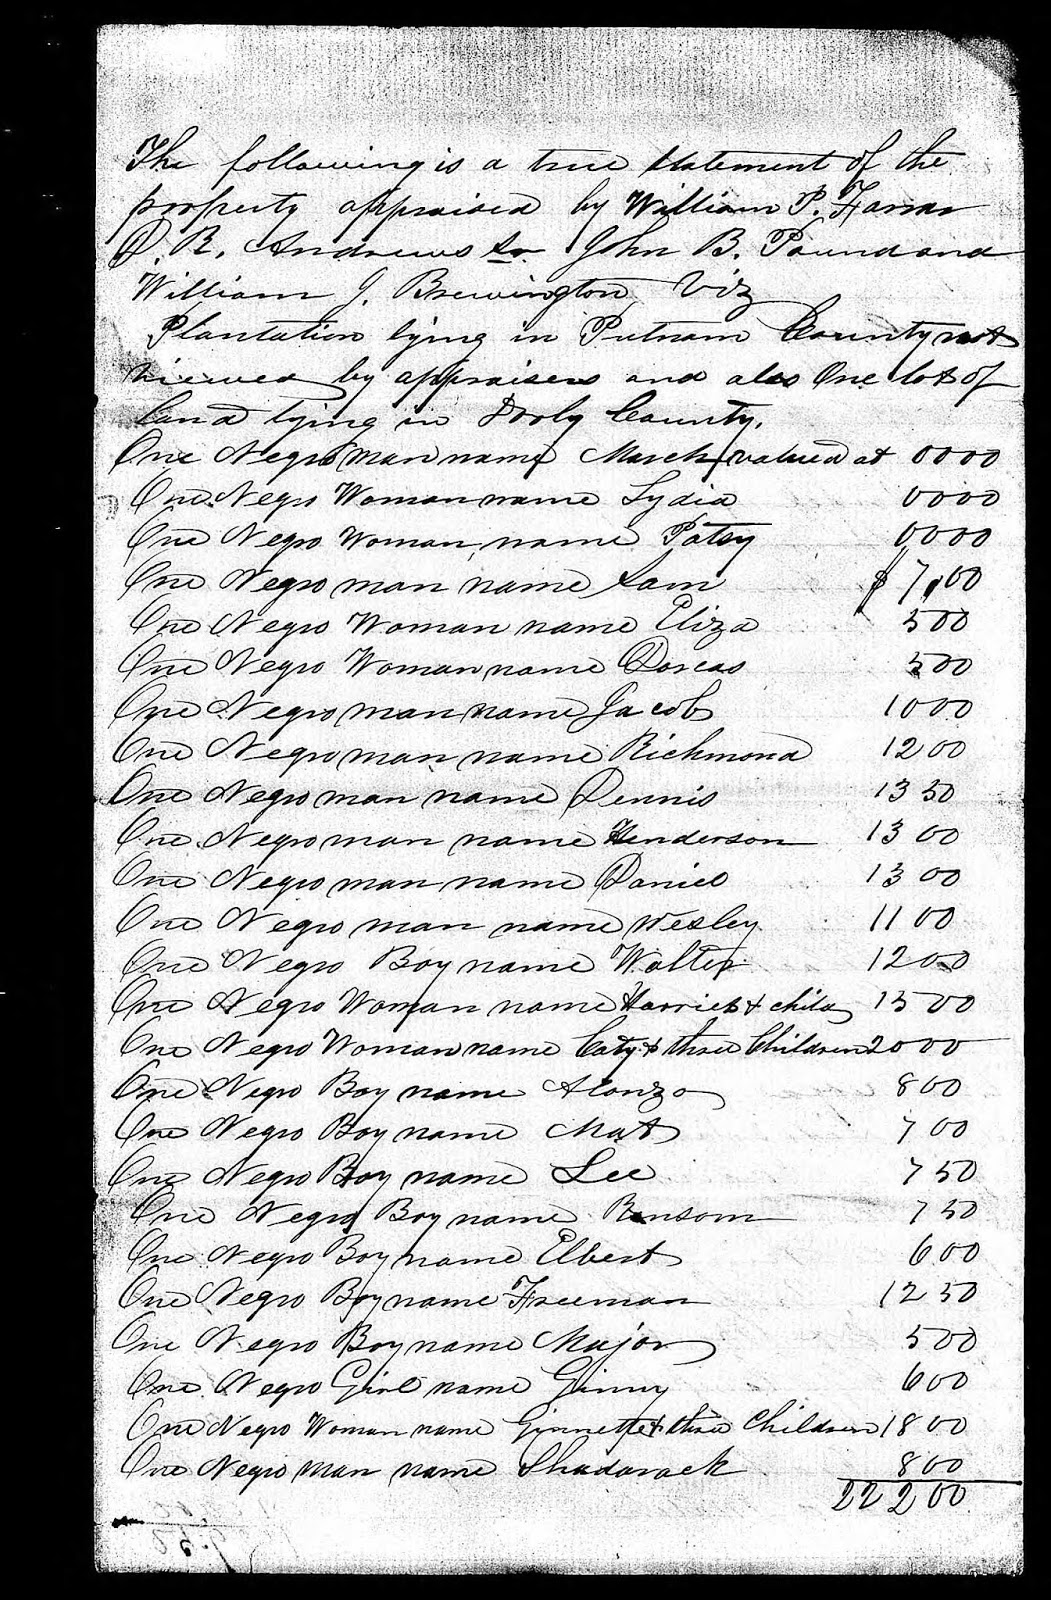 The following is a true statement of the
property appraised by William P. Farrar
D. R. Andrews Sr John B. Pound and
William J. Brewington, Viz
Plantation lying in Putnam County not
viewed by appraisers and also One lot of
land lying in Dooly County.
One Negro man name March valued at 0000
One Negro Woman name Lydia 0000
One Negro Woman name Patsy 0000
One Negro man name Sam $700
One Negro Woman name Eliza 500
One Negro Woman name Dorcas 500
One Negro man name Jacob 1000
One Negro man name Richmond 1200
One Negro man name Dennis 1350
One Negro man name Henderson 1300
One Negro man name Daniel 1300
One Negro man name Wesley 1100
One Negro Boy name Walter 1200
One Negro Woman name Harriet & child 1500
One Negro Woman name Caty & three Children 2000
One Negro Boy name Alonzo 800
One Negro Boy name Mat 700
One Negro Boy name Lee 750
One Negro Boy name Ransom 750
One Negro Boy name Elbert 600
One Negro Boy name Freeman 1250
One Negro Boy name Major 500
One Negro Girl name Ginny 600
One Negro Woman name Ginnette & three Children 1800
One Negro man name Shadarack 800
22200